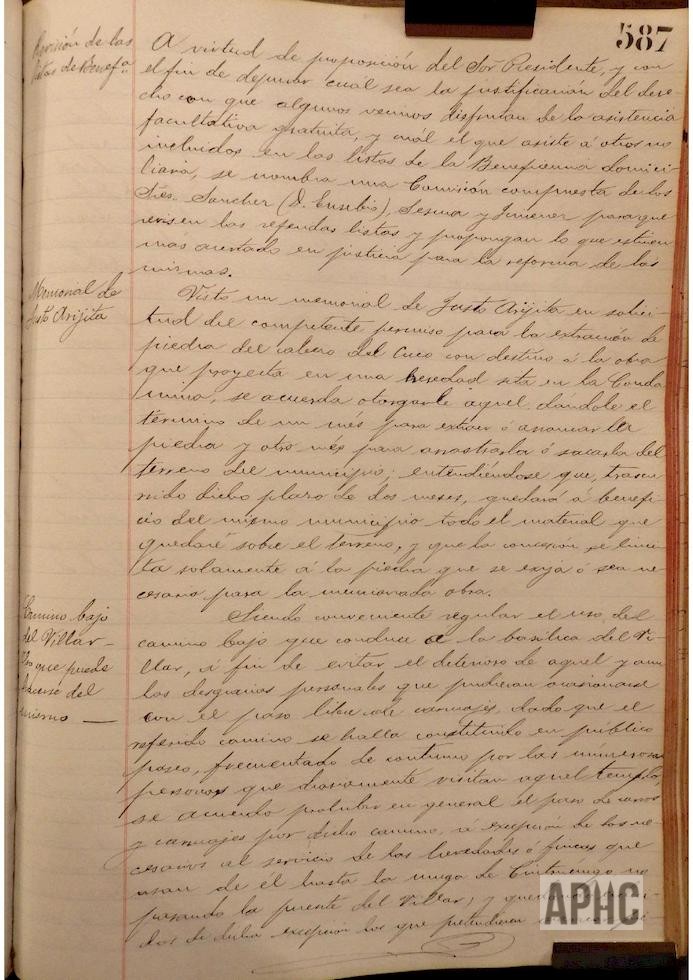 587
Revisión de las
listas de Benefª
A virtud de proposición del Sor Presidente, y con
el fin de depurar cual sea la justificación del dere-
cho con que algunos vecinos disfrutan de la asistencia
facultativa gratuita, y cuál el que asiste á otros no
incluidos en las listas de la Beneficencia domici-
liaria, se nombra una Comisión compuesta de los
Sres. Sanchez (D. Eusebio), Sesma y Jimenez para que
revisen las referidas listas y propongan lo que estimen
más acertado en justicia para la reforma de las
mismas.
Memorial de
Justo Arijita
Visto un memorial de Justo Arijita en solici-
tud del competente permiso para la extracción de
piedra del cabezo del Cuco con destino á la obra
que proyecta en una heredad sita en la Conda
mina, se acuerda otorgarle aquel dándole el
término de un més para extraer ó arrancar la
piedra y otro més para arrastrarla ó sacarla del
terreno del municipio; entendiéndose que, trascu-
rrido dicho plazo de dos meses, quedará á benefi-
cio del mismo municipio todo el material que
quedare sobre el terreno, y que la concesión se limi-
ta solamente á la piedra que se exija ó sea ne-
cesaria para la memorada obra.
Camino bajo
del Villar-
Uso que puede
hacerse del
mismo —
Siendo conveniente regular el uso del
camino bajo que conduce á la basílica del Vi-
llar, á fin de evitar el deterioro de aquel y aun
las desgracias personales que pudieran ocasionarse
con el paso libre de carruajes, dado que el
referido camino se halla constituido en público
paseo, frecuentado de continuo por las numerosas
personas que diariamente visitan aquel templo,
se acuerda prohibir en general el paso de carros
y carruajes por dicho camino, á excepción de los ne-
cesarios al servicio de las heredades ó fincas que
usan de él hasta la muga de Cintruénigo no
pasando la puente del Villar; y
dos de dicha excepción los que pretendieran
APHC